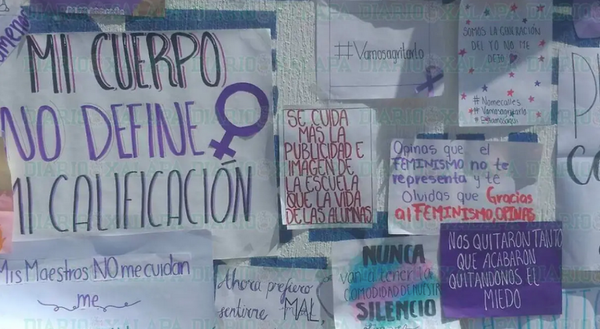 MI CUERPO
NO DEFINE
MI CALIFICACIÓN
#Vamosagritarlo
SOMOS LA GENERACIÓN
DEL YO NO ME
DEJO
#Nomecalles
SE CUIDA
MAS LA
PUBLICIDAD E
IMAGEN DE
LA ESCUELA
QUE LA VIDA
DE LAS ALUMNAS
Opinas que el
FEMINISMO no te
representa y te
Olvidas que Gracias
al FEMINISMO, OPINAS
Mis Maestros NO me cuidan
me
Ahora prefiero
sentirme MAL
NUNCA
van a tener la
COMODIDAD DE NUESTRO
SILENCIO
NOS QUITARON TANTO
QUE ACABARON
QUITANDONOS EL
MIEDO
DIARIO XALAPA